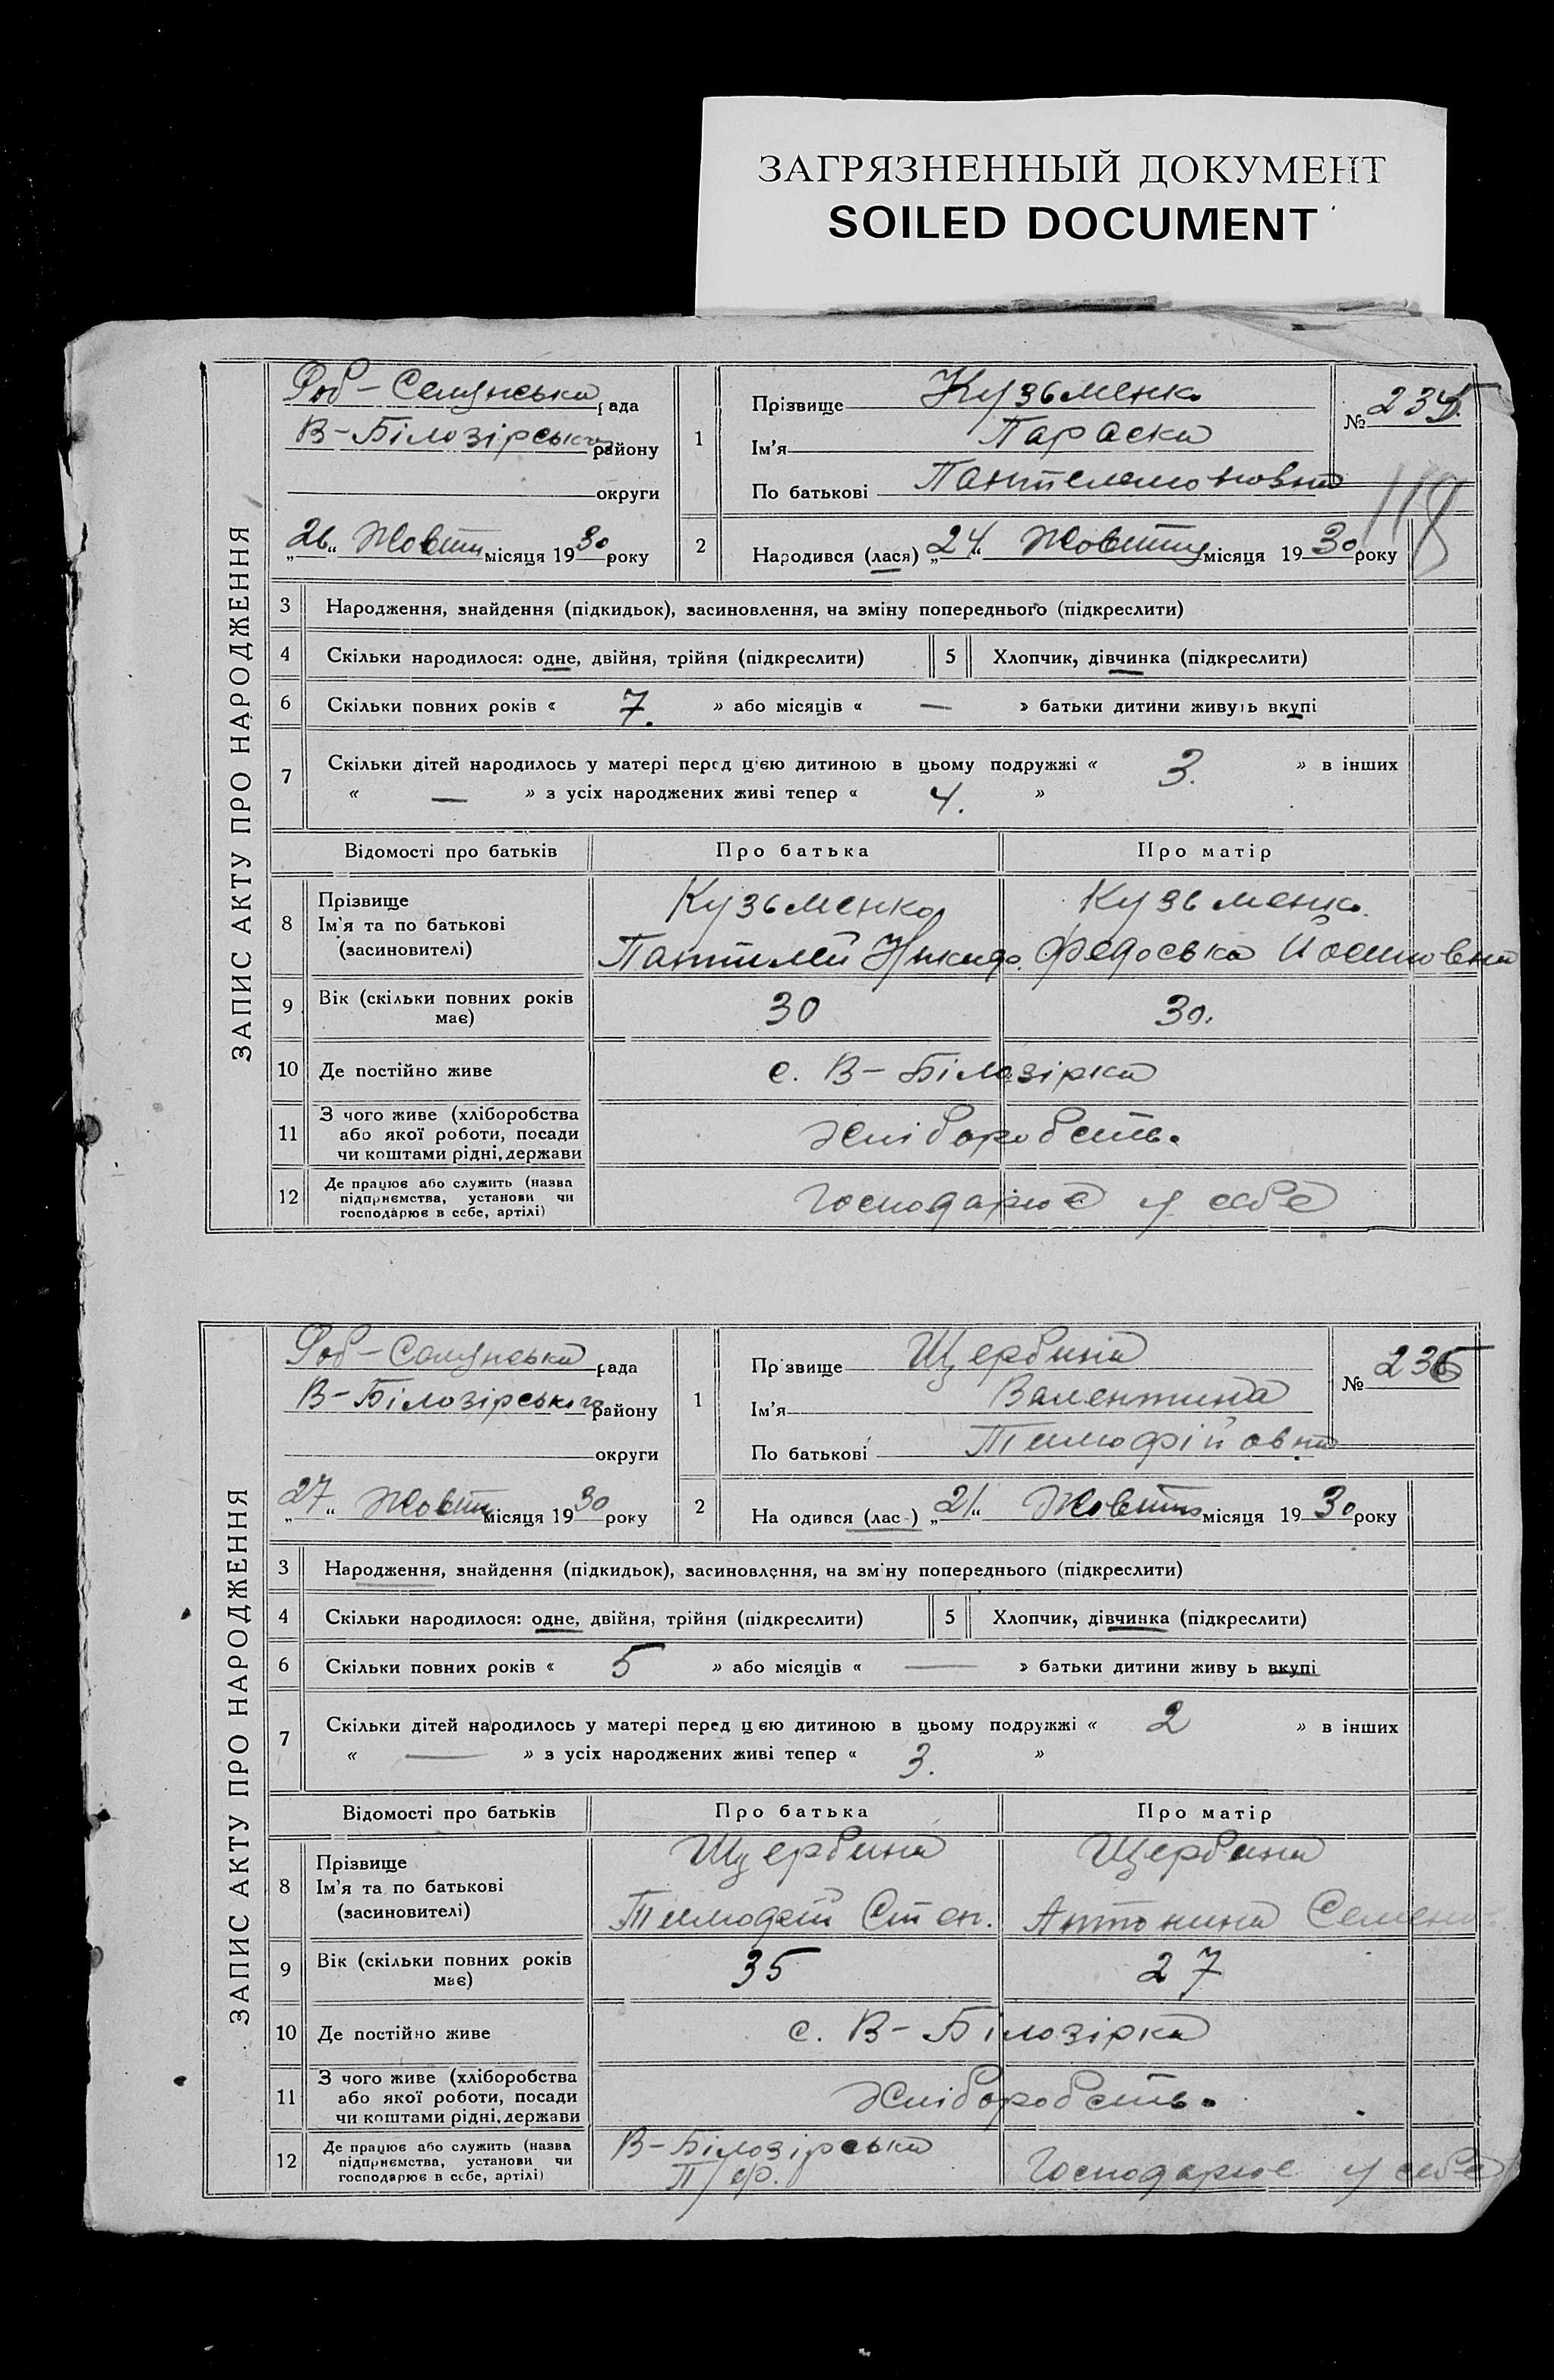 ЗАГРЯЗНЕННЫЙ ДОКУМЕНТ
SOILED DOCUMENT
ЗАПИС АКТУ ПРО НАРОДЖЕННЯ
Роб-Селянська рада
В-Білозірського району
округи
„26“ Жовтн місяця 1930 року
1
Прізвище Кузьменко
Ім'я Параска
По батькові Пантелемоновна
№ 235
118
2
Народився (лася) „24“ Жовтня місяця 1930 року
3 Народження, знайдення (підкидьок), засиновлення, на зміну попереднього (підкреслити)
4 Скільки народилося: одне, двійня, трійня (підкреслити) 5 Хлопчик, дівчинка (підкреслити)
6 Скільки повних років « 7. » або місяців « — » батьки дитини живуть вкупі
7 Скільки дітей народилось у матері перед цією дитиною в цьому подружжі « 3. » в інших
« — » з усіх народжених живі тепер « 4. »
Відомості про батьків Про батька Про матір
8 Прізвище Кузьменко Кузьменко
Ім'я та по батькові
(засиновителі) Пантилей Никидо. Федоська
9 Вік (скільки повних років має) 30 30.
10 Де постійно живе с. В-Білозірка
11 З чого живе (хліборобства
або якої роботи, посади
чи коштами рідні, держави Хліборобств.
12 Де працює або служить (назва
підприємства, установи чи
господарює в себе, артілі) Господарює у себе
ЗАПИС АКТУ ПРО НАРОДЖЕННЯ
Роб-Селянська рада
В-Білозірського району
округи
„27“ Жовтн місяця 1930 року
1
Пр звище Щербина
Ім'я Валентина
По батькові Тимофійовна
№ 236
2
На одився (лас ) „21“ Жовтня місяця 1930 року
3 Народження, знайдення (підкидьок), засиновлення, на зм ну попереднього (підкреслити)
4 Скільки народилося: одне, двійня, трійня (підкреслити) 5 Хлопчик, дівчинка (підкреслити)
6 Скільки повних років « 5 » або місяців « — » батьки дитини живу ь вкупі
7 Скільки дітей народилось у матері перед цією дитиною в цьому подружжі « 2 » в інших
« — » з усіх народжених живі тепер « 3. »
Відомості про батьків Про батька Про матір
8 Прізвище Щербина Щербина
Ім'я та по батькові
(засиновителі) Тимофей Степ. Антонина Семен
9 Вік (скільки повних років має) 35 27
10 Де постійно живе с. В-Білозірка
11 З чого живе (хліборобства
або якої роботи, посади
чи коштами рідні, держави Хліборобств.
12 Де працює або служить (назва
підприємства, установи чи
господарює в себе, артілі) В-Білозірська Господарює у себе